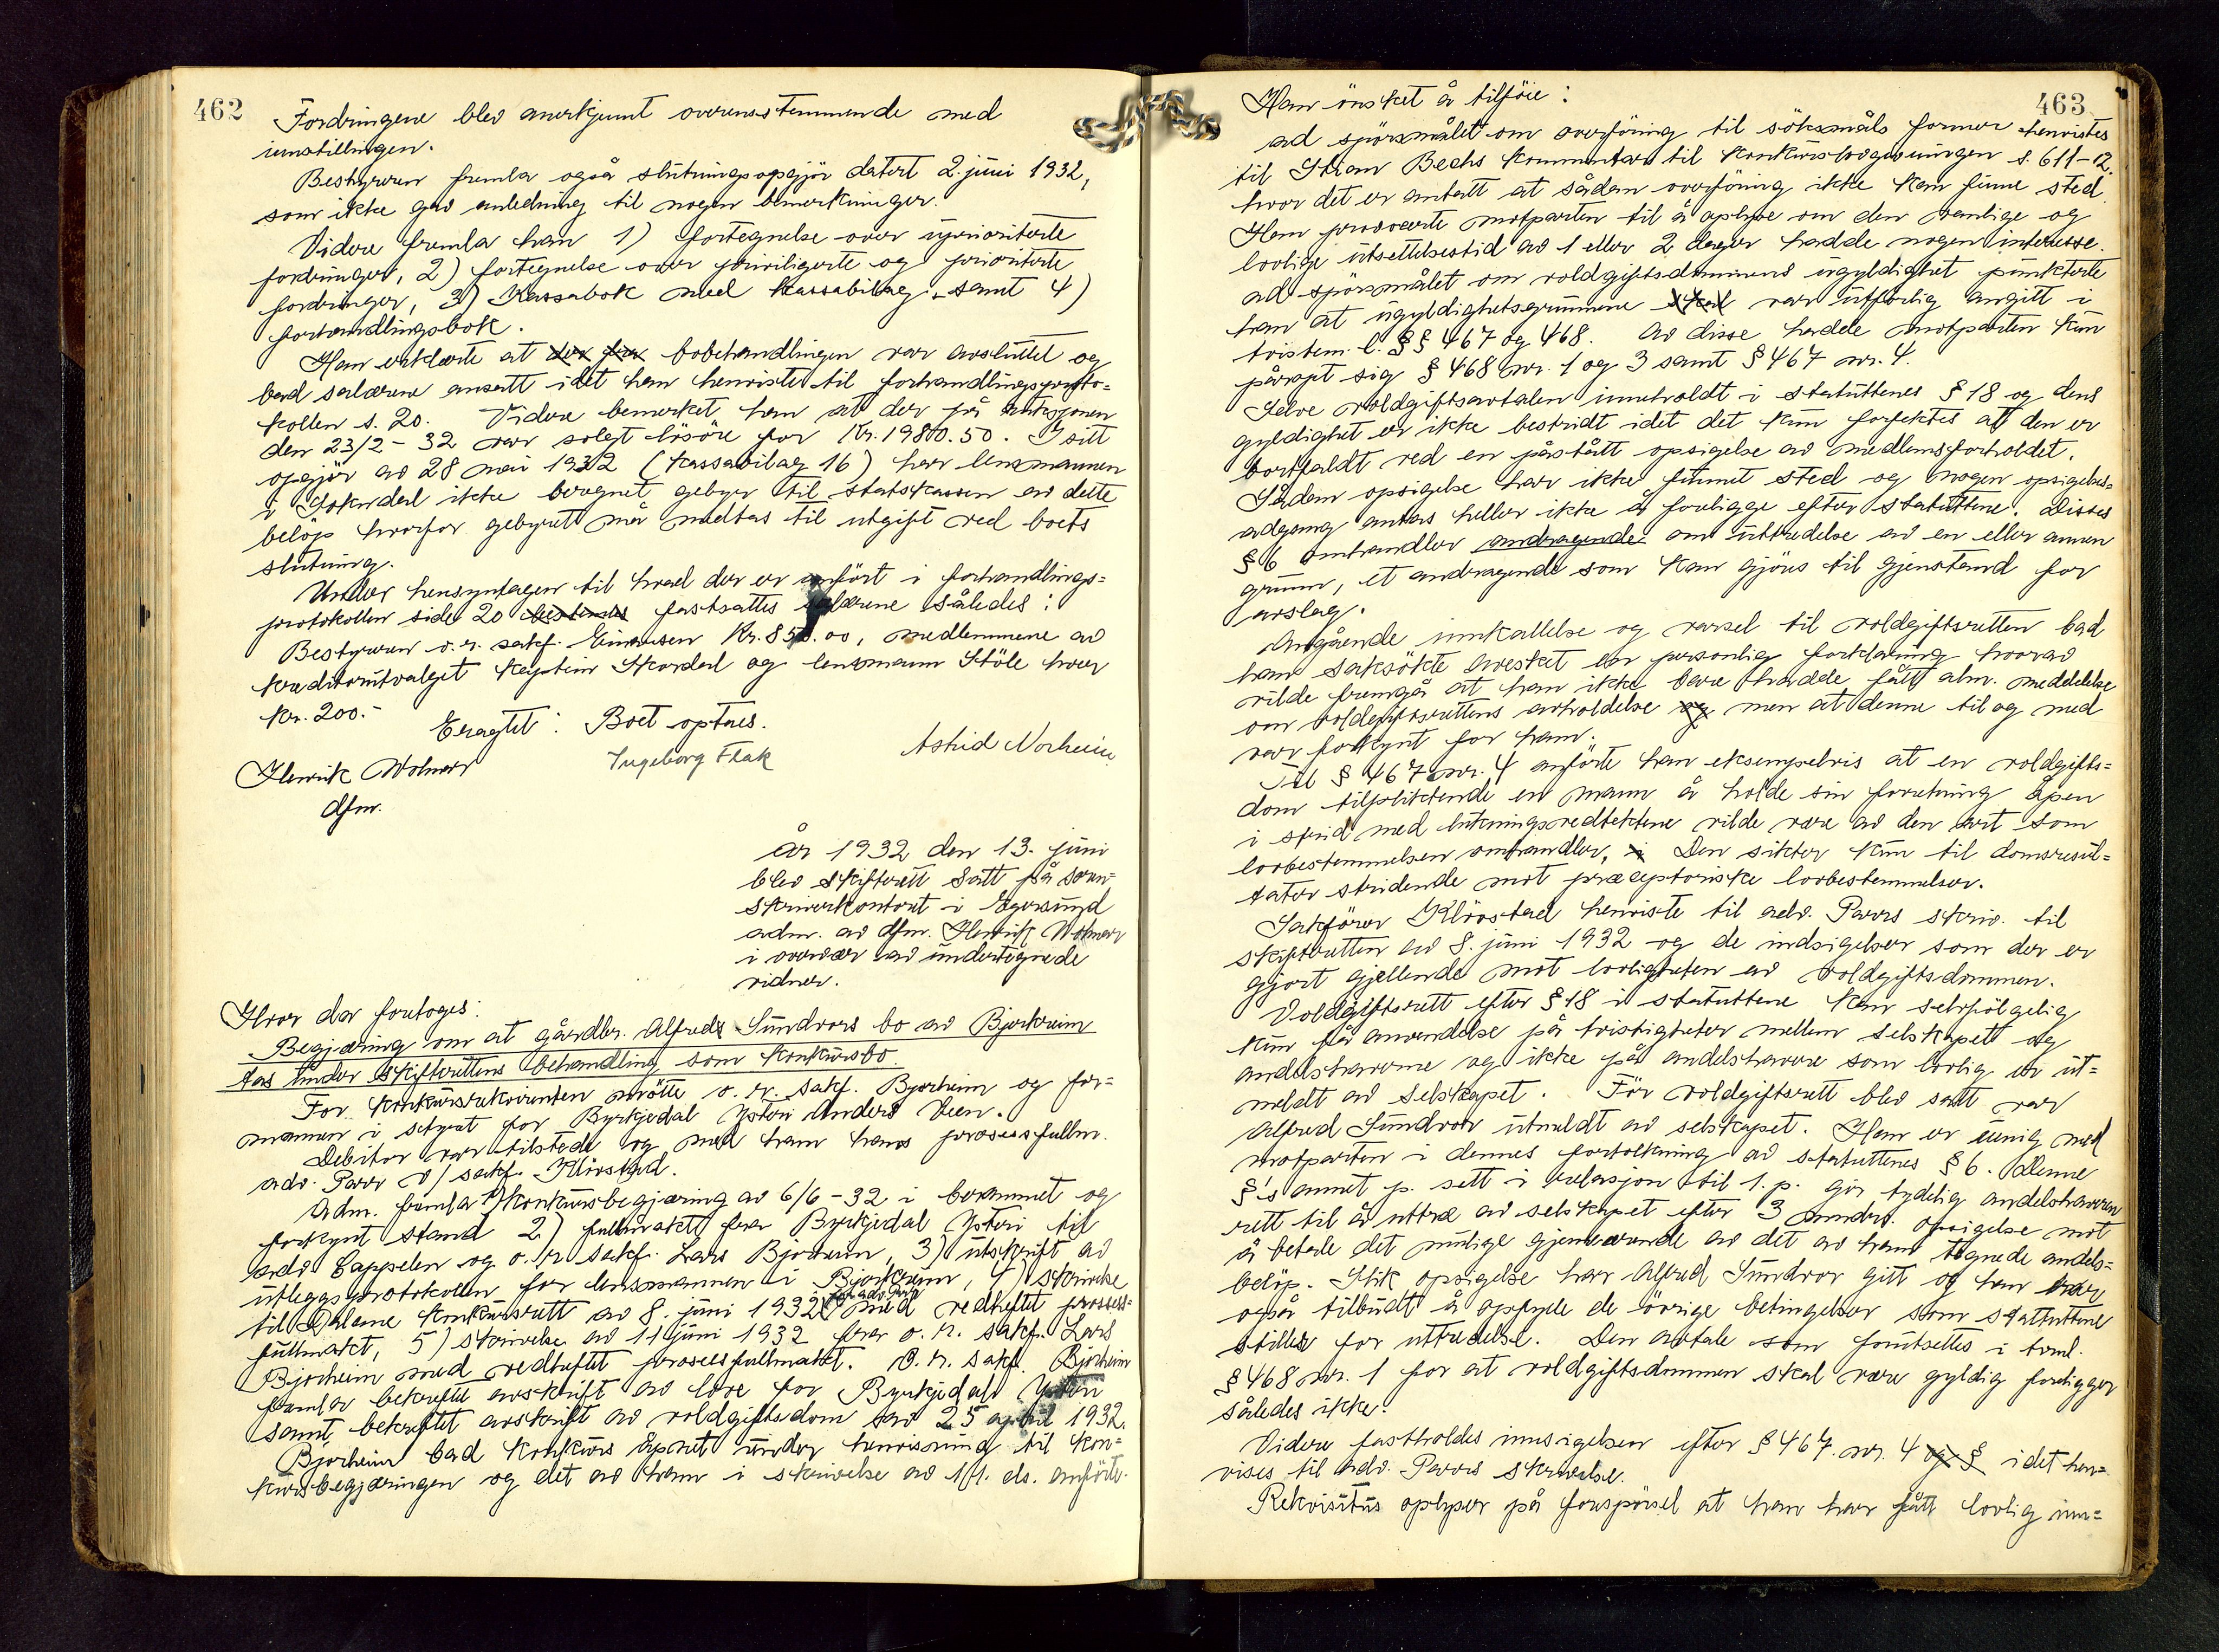 462
Fordringene blev anerkjent overensstemmende med
innstillingen.
Bestyreren fremla også slutningsopgjör datert 2. juni 1932,
som ikke gav anledning til nogen bemerkninger.
Videre fremla han 1) fortegnelse over uprioriterte
fordringer, 2) fortegnelse over priviligerte og prioriterte
fordringer, 3) Kassabok med Kassabilag, samt 4)
forhandlingsbok.
Han erklærte at bobehandlingen var avsluttet og
bad salærene ansatt idet han henviste til forhandlingsproto=
kollen s. 20. Videre bemerket han at der på auksjonen
den 23/2 - 32 var solgt lösöre for Kr. 1980.50. I sitt
opgjör av 28 mai 1932 (Kassabilag 16) har lensmannen
i Sokndal ikke beregnet gebyr til statskassen av dette
belöp hvorfor gebyret må medtas til utgift ved boets
slutning.
Under hensyntagen til hvad der er anfört i forhandlings=
protokollen side 20 bestemtes fastsattes salærene således:
Bestyreren o.r. sakf. Einarsen Kr. 850.00, medlemmene av
kreditorutvalget Kaptein Skordal og lensmann Stöle hver
kr. 200.-
Eragtet: Boet optaes.
Henrik Wolmer
dfm.
Ingeborg Flak
Astrid Norheim
År 1932 den 13. juni
blev skifterett satt på soren=
skriverkontoret i Egersund
adm. av dfm. Henrik Wolmer
i overvær av undertegnede
vidner.
Hvor da foretoges:
Begjæring om at gårdbr. Alfred Sundvors bo av Bjerkreim
tas under skifterettens behandling som konkursbo.
For Konkursrekvirenten mötte o.r. sakf. Bjorheim og for=
mannen i styret for Byrkjedal Ysteri Anders Veen.
Debitor var tilstede og med ham hans prosessfullm.
adv. Pavor v/ sakf. Klövstad.
Adm. fremla 1) Konkursbegjæring av 6/6 - 32 i berammet og
forkynt stand 2) fullmakt fra Byrkjedal Ysteri til
adv. Cappelen og o.r. sakf. Lars Bjorheim, 3) utskrift av
utleggsprotokollen for lensmannen i Bjerkreim, 4) skrivelse
til Dalane Konkursrett av 8. juni 1932 fra adv. Pavor med vedheftet prosess=
fullmakt, 5) skrivelse av 11 juni 1932 fra o.r. sakf. Lars
Bjorheim med vedheftet prosessfullmakt. O.r. sakf. Bjorheim
fremla bekreftet avskrift av love for Byrkjedal Ysteri
samt bekreftet avskrift av voldgiftsdom av 25 april 1932.
Bjorheim bad Konkurs åpnet under henvisning til Kon=
kursbegjæringen og det av ham i skrivelse av 11. ds. anförte.
463
Han önsket å tilföie:
ad spörsmålet om overföring til söksmåls former henvistes
til Stian Bechs kommentar til Konkurslovgivningen s. 611-12,
hvor det er antatt at sådan overföring ikke kan finne sted.
Han provoserte motparten til å oplyse om den vanlige og
lovlige utsettelsestid av 1 eller 2 dager hadde nogen interesse.
ad spörsmålet om voldgiftsdommens ugyldighet punkterte
han at ugyldighetsgrunnene skal var utförlig angitt i
tvistem. l. §§ 467 og 468. Av disse hadde motparten kun
påropt sig § 468 nr. 1 og 3 samt § 467 nr. 4.
Selve voldgiftsavtalen inneholdt i statuttenes § 18 og dens
gyldighet er ikke bestridt idet det kun forfektes at den er
bortfaldt ved en påstått opsigelse av medlemsforholdet.
Sådan opsigelse har ikke funnet sted og nogen opsigelses=
adgang antas heller ikke å foreligge efter statuttene. Disses
§ 6 omhandler andragende om uttredelse av en eller annen
grunn, et andragende som kan gjöres til gjenstand for
avslag.
Angående innkallelse og varsel til voldgiftsretten bad
han saksökte avesket en personlig forklaring hvorav
vilde fremgå at han ikke bare hadde fått alm. meddelelse
om voldgiftsrettens avholdelse og men at denne til og med
var forkynt for ham.
Til § 467 nr. 4 anförte han eksempelvis at en voldgifts=
dom tilpliktende en mann å holde sin forretning åpen
i strid med lukningsvedtektene vilde være av den art som
lovbestemmelsen omhandler. Den sikter kun til domsresul=
tater stridende mot preceptoriske lovbestemmelser.
Sakförer Klövstad henviste til adv. Pavors skriv. til
skifteretten av 8. juni 1932 og de indsigelser som der er
gjort gjellende mot lovligheten av voldgiftsdommen.
Voldgiftsrett efter § 18 i statuttene kan selvfölgelig
kun få anvendelse på tvistigheter mellem selskapet og
andelshaverne og ikke på andelshavere som lovlig er ut=
meldt av selskapet. För voldgiftsrett blev satt var
Alfred Sundvor utmeldt av selskapet. Han er uenig med
motparten i dennes fortolkning av statuttenes § 6. Denne
§'s annet p. sett i relasjon til 1. p. gir tydelig andelshaveren
rett til å uttræ av selskapet efter 3 mndrs. opsigelse mot
å betale det mulige gjenværende av det av ham tegnede andels=
belöp. Slik opsigelse har Alfred Sundvor gitt og han har
også tilbudt å opfylde de övrige betingelser som statuttene
stiller for uttredelse. Den avtale som forutsettes i tvml.
§ 468 nr. 1 for at voldgiftsdommen skal være gyldig foreligger
således ikke.
Videre fastholdes innsigelsen efter § 467. nr. 4 og § idet hen=
vises til adv. Pavors skrivelse.
Rekvisitus oplyser på forespörsel at han har fått lovlig inn=